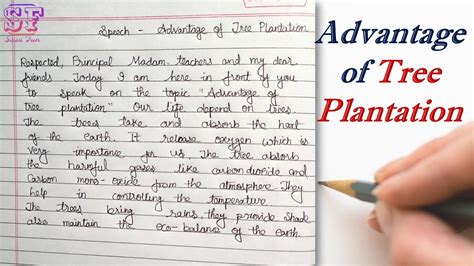 ST
Speech - Advantage of Tree Plantation
Respected, Principal Madam, teachers and my dear
friends. Today I am here in front of you
to speak on the topic "Advantage of
tree plantation". Our life depend on trees
The trees take and absorb the heat
of the earth. It release oxygen which is
very importance for us. The tree absorb
the harmful gases like carbondioxide and
Carbon mono-oxide from the atmosphere. They
help in controlling the temperature.
The trees bring rains. they provide shade
also maintain the eco-balance of the earth.
Advantage
of Tree
Plantation